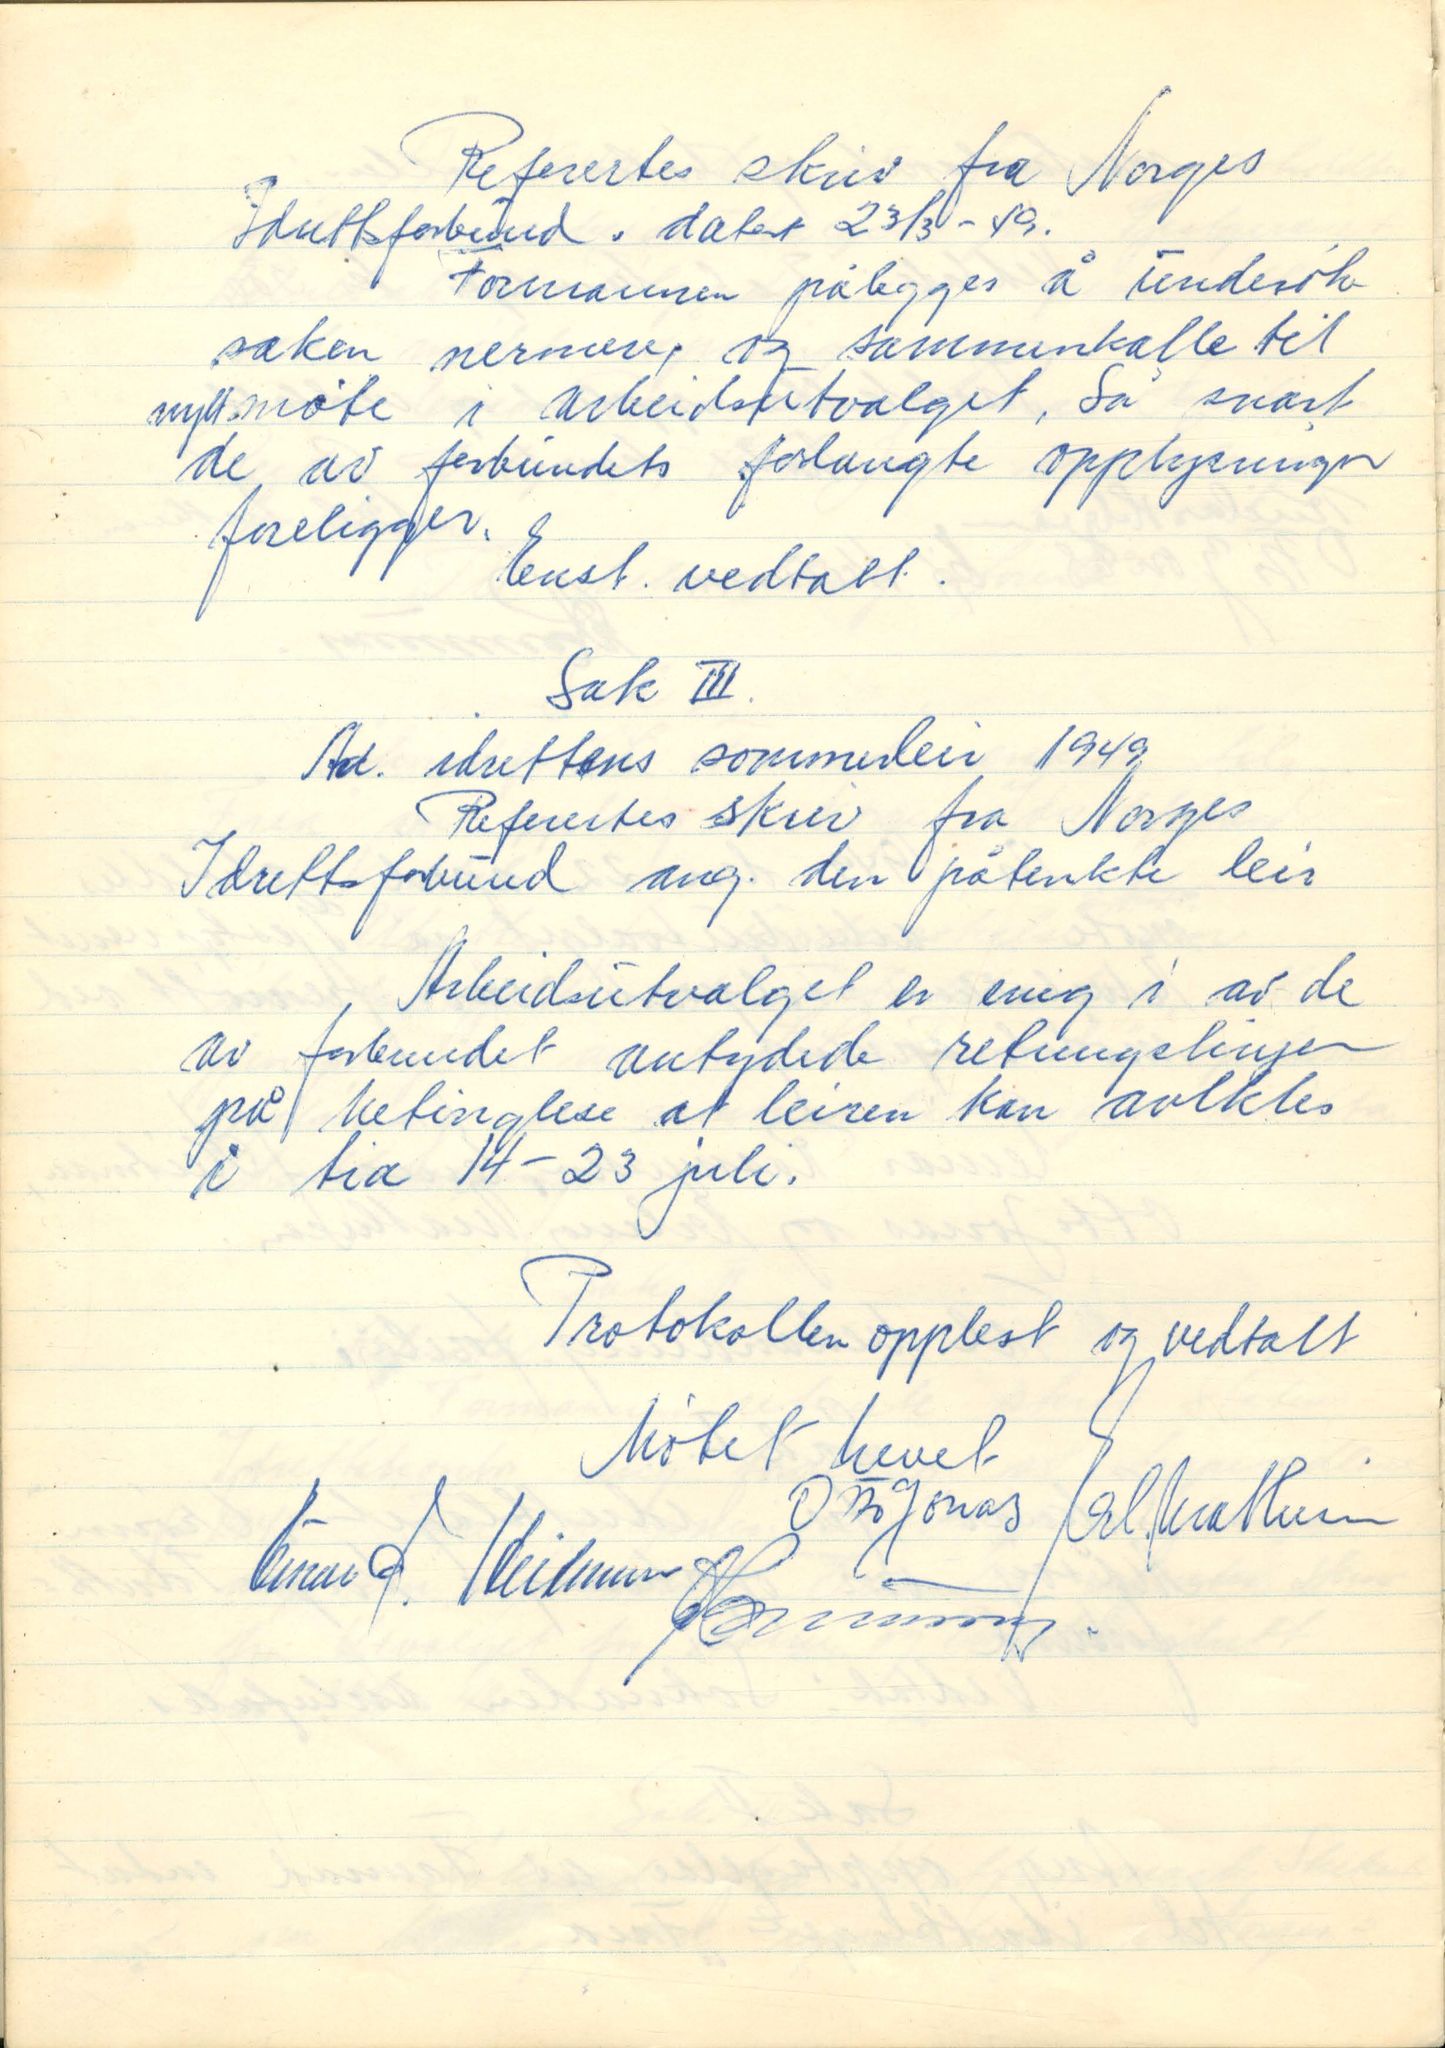 Referertes skriv fra Norges
Idrettsforbund. datert 23/3-49.
Formannen pålegges å undersöke
saken nermere, og sammenkalle til
nytt möte i arbeidsutvalget, så snart
de av forbundets forlangte opplysninger
foreligger.
Enst. vedtatt.
Sak III.
Ad. idrettens sommerleir 1949
Referertes skriv fra Norges
Idrettsforbund ang. den påtenkte leir
Arbeidsutvalget er enig i av de
av forbundet antydede retningslinjer
på betinglese at leiren kan avlktes
i tia 14-23 juli.
Protokollen opplest og vedtatt
Mötet hevet
Otto Jonas Erl. Mathisen
Einar